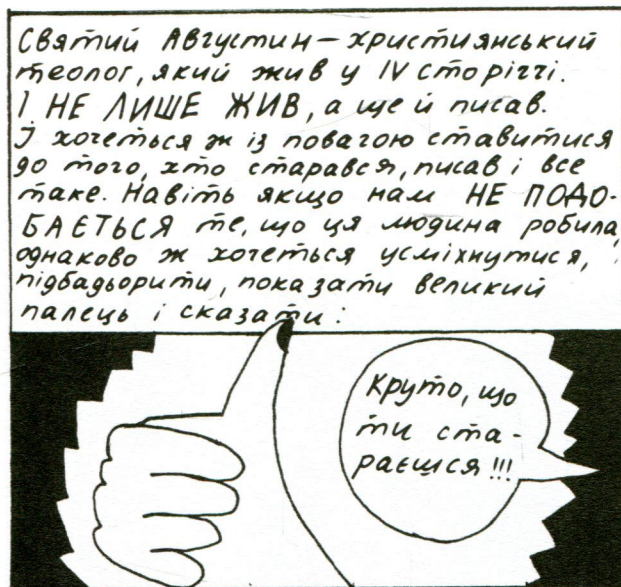 Святий Августин – християнський
теолог, який жив у IV сторіччі.
І НЕ ЛИШЕ ЖИВ, а ще й писав.
І хочеться ж із повагою ставитися
до того, хто старався, писав і все
таке. Навіть якщо нам НЕ ПОДО-
БАЄТЬСЯ те, що ця людина робила,
однаково ж хочеться усміхнутися,
підбадьорити, показати великий
палець і сказати:
Круто, що
ти ста-
раєшся!!!